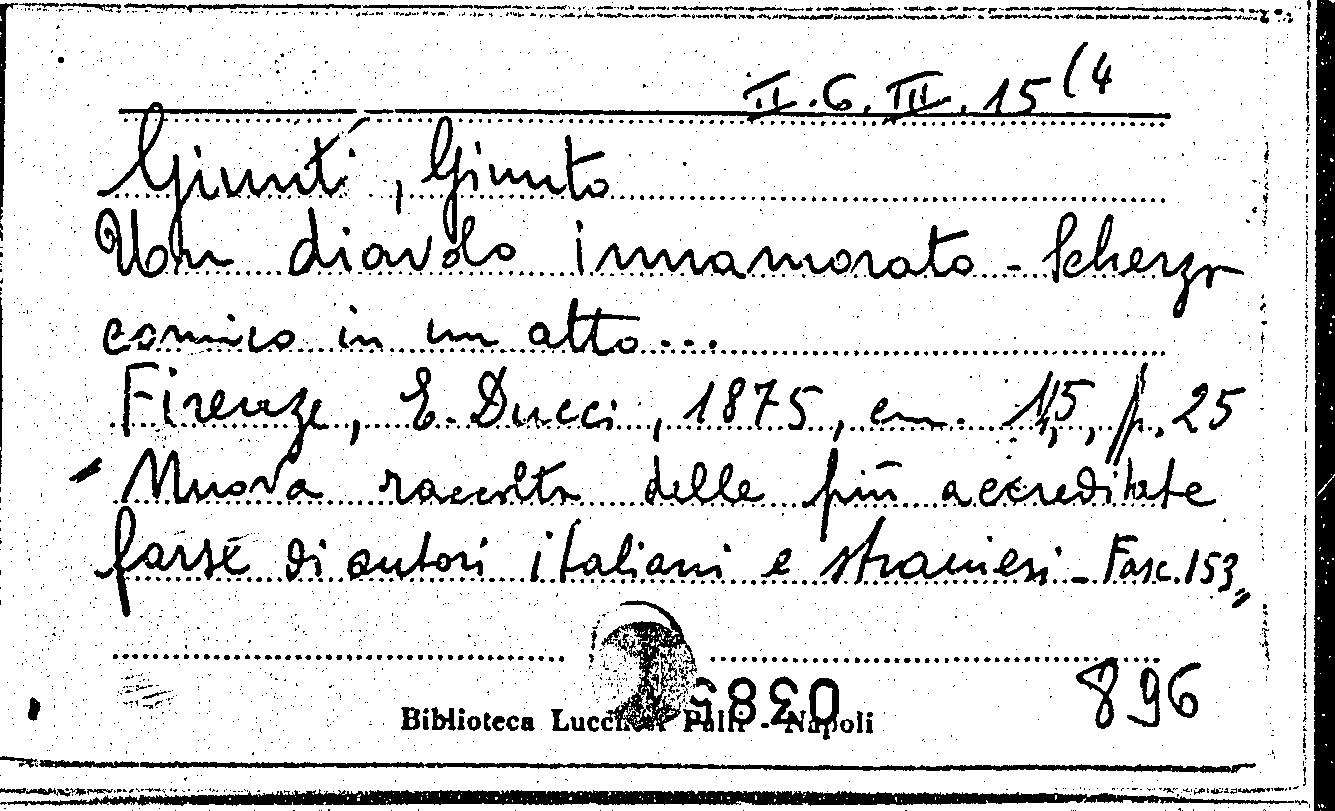 II.6.III.15(4
Giunti, Giunto
Un diavolo innamorato - Scherzo
comico in un atto...
Firenze, E. Ducci, 1875, cm. 15, p. 25
"Nuova raccolta delle più accreditate
farse di autori italiani e stranieri - Fasc. 153"
896
Biblioteca Lucchesi Palli - Napoli